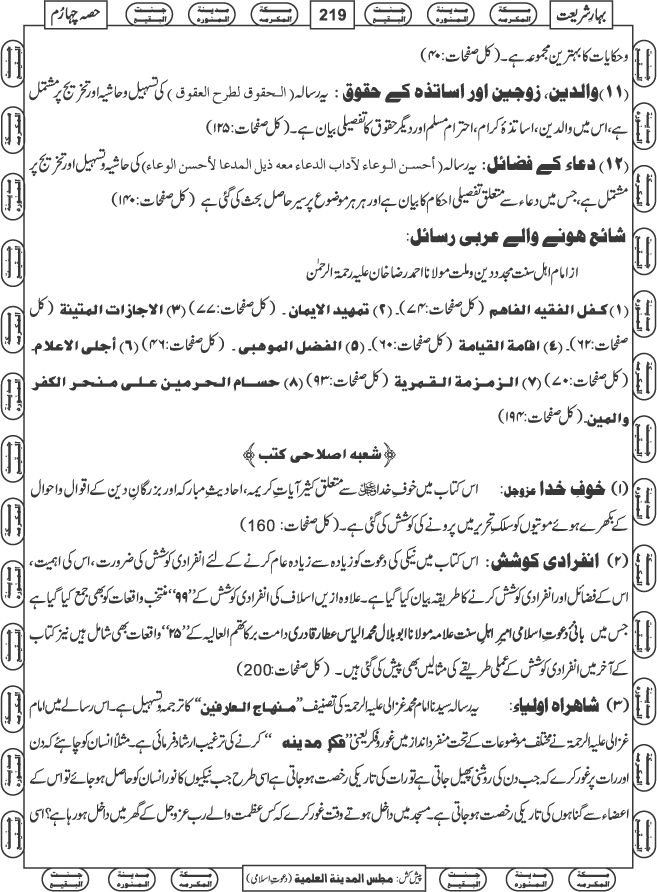 بہارِشریعت
219
حصہ چہارم
وحکایات کا بہترین مجموعہ ہے۔ (کل صفحات: ۴۰)
(۱۱) والدین، زوجین اور اساتذہ کے حقوق : یہ رسالہ (الحقوق لطرح العقوق ) کی تسہیل وحاشیہ اور تخریج پر مشتمل
ہے، اس میں والدین، اساتذۂ کرام، احترامِ مسلم اور دیگر حقوق کا تفصیلی بیان ہے۔ (کل صفحات: ۱۲۵)
(۱۲) دعاء کے فضائل: یہ رسالہ (أحسن الوعاء لآداب الدعاء معه ذيل المدعا لأحسن الوعاء) کی حاشیہ وتسہیل اور تخریج پر
مشتمل ہے، جس میں دعاء سے متعلق تفصیلی احکام کا بیان ہے اور ہر ہر موضوع پر سیر حاصل بحث کی گئی ہے (کل صفحات: ۱۴۰)
شائع ہونے والے عربی رسائل:
از امام اہل سنت مجدد دین وملت مولانا احمد رضا خان علیہ رحمۃ الرحمٰن
(۱) کفل الفقیہ الفاہم (کل صفحات: ۷۴)۔ (۲) تمہید الایمان ۔ (کل صفحات: ۷۷) (۳) الاجازات المتینۃ (کل
صفحات: ۶۲)۔ (۴) اقامۃ القیامۃ (کل صفحات: ۶۰)۔ (۵) الفضل الموہبی ۔ (کل صفحات: ۴۶) (۶) أجلی الاعلام۔
(کل صفحات: ۷۰) (۷) الزمزمۃ القمریۃ (کل صفحات: ۹۳) (۸) حسام الحرمین علی منحر الکفر
والمین۔ (کل صفحات: ۱۹۴)
﴿ شعبہ اصلاحی کتب ﴾
(۱) خوفِ خدا عزوجل: اس کتاب میں خوفِ خدا سے متعلق کثیر آیاتِ کریمہ، احادیثِ مبارکہ اور بزرگانِ دین کے اقوال واحوال
کے بکھرے ہوئے موتیوں کو سلکِ تحریر میں پرونے کی کوشش کی گئی ہے۔ (کل صفحات: 160)
(۲) انفرادی کوشش: اس کتاب میں نیکی کی دعوت کو زیادہ سے زیادہ عام کرنے کے لئے انفرادی کوشش کی ضرورت، اس کی اہمیت،
اس کے فضائل اور انفرادی کوشش کرنے کا طریقہ بیان کیا گیا ہے۔ علاوہ ازیں اسلاف کی انفرادی کوشش کے ”۹۹“ منتخب واقعات کو بھی جمع کیا گیا ہے
جس میں بانیٔ دعوت اسلامی امیرِ اہلِ سنت علامہ مولانا ابو بلال محمد الیاس عطار قادری دامت برکاتہم العالیہ کے ”۲۵“ واقعات بھی شامل ہیں نیز کتاب
کے آخر میں انفرادی کوشش کے عملی طریقے کی مثالیں بھی پیش کی گئی ہیں۔ (کل صفحات: 200)
(۳) شاہراہ اولیاء: یہ رسالہ سیدنا امام محمد غزالی علیہ الرحمۃ کی تصنیف ”منہاج العارفین“ کا ترجمہ وتسہیل ہے۔ اس رسالے میں امام
غزالی علیہ الرحمۃ نے مختلف موضوعات کے تحت منفرد انداز میں غور وفکر یعنی ”فکرِ مدینہ “ کرنے کی ترغیب ارشاد فرمائی ہے۔ مثلاً انسان کو چاہئے کہ دن
اور رات پر غور کرے کہ جب دن کی روشنی پھیل جاتی ہے تو رات کی تاریکی رخصت ہوجاتی ہے اسی طرح جب نیکیوں کا نور انسان کو حاصل ہو جائے تو اس کے
اعضاء سے گناہوں کی تاریکی رخصت ہو جاتی ہے۔ مسجد میں داخل ہوتے وقت غور کرے کہ کس عظمت والے رب عزوجل کے گھر میں داخل ہو رہا ہے؟ اسی
پیش کش: مجلس المدینۃ العلمیۃ (دعوتِ اسلامی)